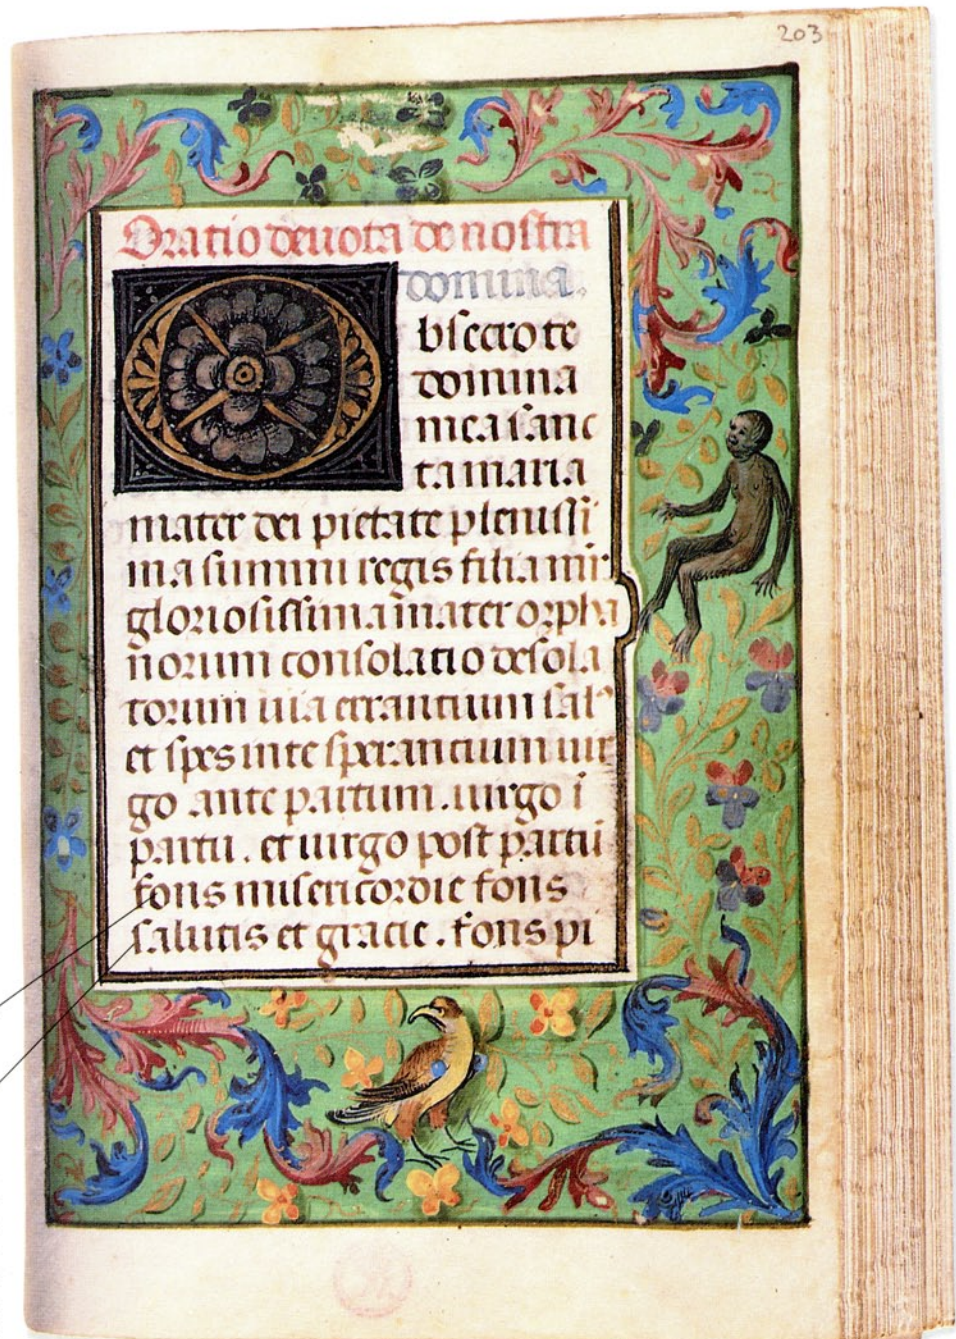 203
Oratio deuota de nostra
domina.
bsecro te
domina
mea sanc
ta maria
mater dei pietate plenissi
ma summi regis filia mr̄
gloriosissima mater orpha
norum consolatio desola
torum uia errantium sal⁹
et spes in te sperantium uir
go ante partum. uirgo ī
partu. et uirgo post partū
fons misericordie fons
salutis et gracie. fons pi